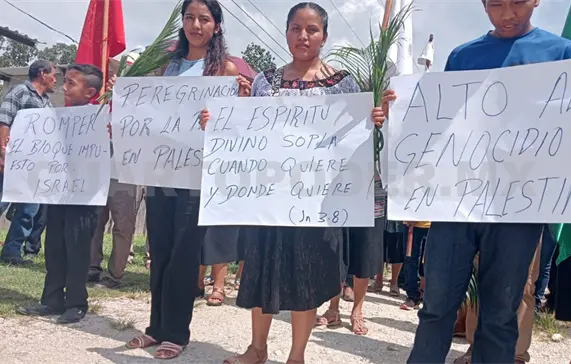 ROMPER
EL BLOQUE IMPU-
ESTO POR
ISRAEL
PEREGRINACI
POR LA P
EN PALES
EL ESPIRITU
DIVINO SOPLA
CUANDO QUIERE
Y DONDE QUIERE
(Jn 3.8)
ALTO A
GENOCIDIO
EN PALESTIN